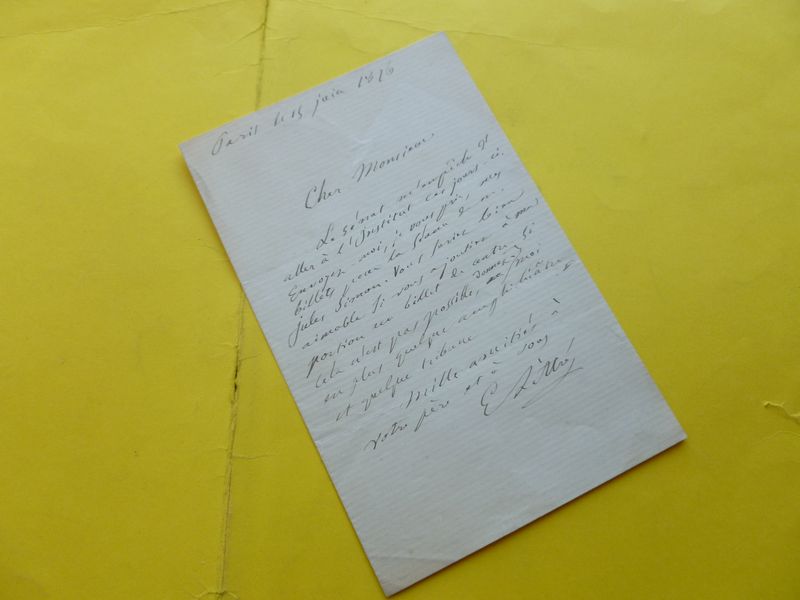 Paris le 15 juin 1876
Cher Monsieur
Le Sénat m'empêche d'
aller à l'Institut ces jours-ci.
Envoyez moi, je vous prie, mes
billets pour la séance de m.
Jules Simon. Vous seriez bien
aimable si vous ajoutiez à ma
portion un billet de centre. Si
cela n'est pas possible, donnez moi
en plus quelque amphithéâtre
et quelque tribune
Mille amitiés à
votre père et à vous
E Littré